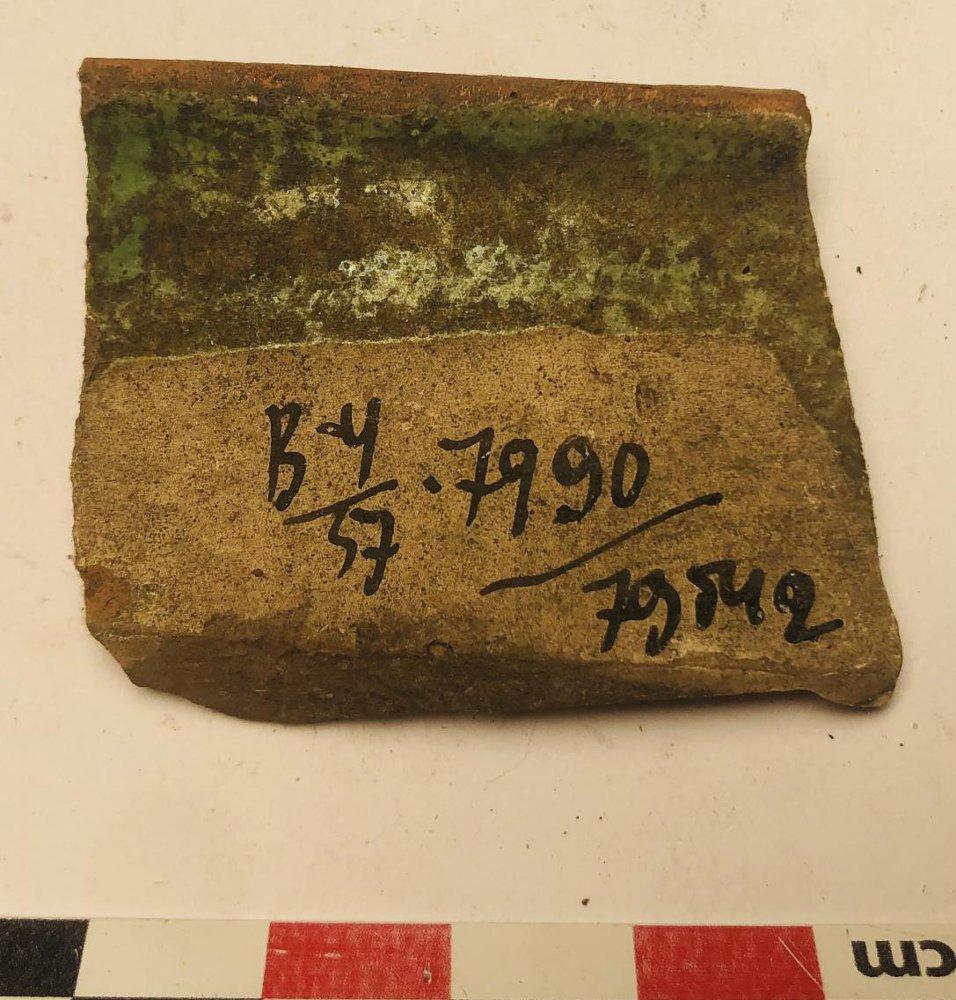 В-4/57 . 7990/
79542
cm